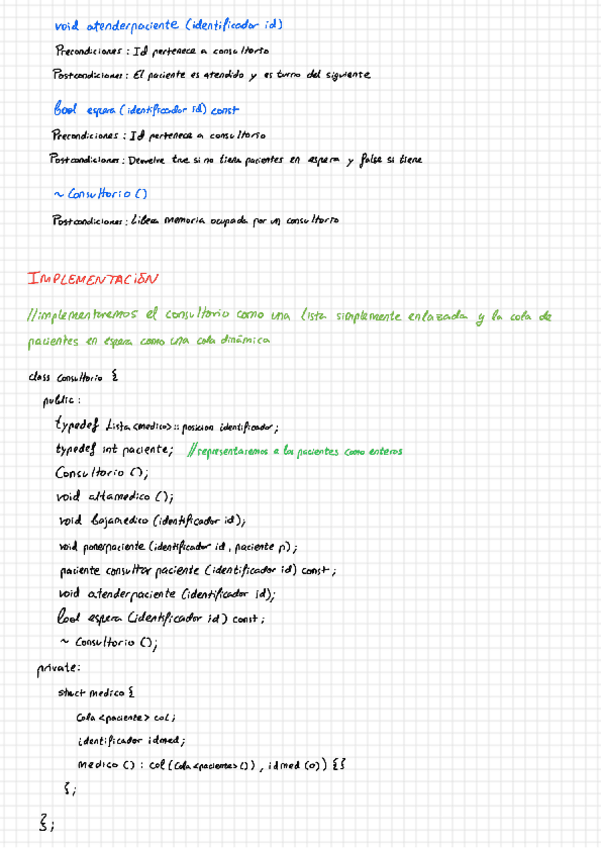 void atenderpaciente (identificador id)
Precondiciones: Id pertenece a consultorio
Postcondiciones: El paciente es atendido y es turno del siguiente
bool espera (identificador id) const
Precondiciones: Id pertenece a consultorio
Postcondiciones: Devuelve true si no tiene pacientes en espera y false si tiene
~ Consultorio ()
Postcondiciones: Libera memoria ocupada por un consultorio
IMPLEMENTACIÓN
//implementaremos el consultorio como una lista simplemente enlazada y la cola de
pacientes en espera como una cola dinámica
class Consultorio {
public:
typedef Lista<medico>::posicion identificador;
typedef int paciente; //representaremos a los pacientes como enteros
Consultorio ();
void altamedico ();
void bajamedico (identificador id);
void ponerpaciente (identificador id, paciente p);
paciente consultar paciente (identificador id) const;
void atenderpaciente (identificador id);
bool espera (identificador id) const;
~ Consultorio ();
private:
struct medico {
Cola <paciente> col;
identificador idmed;
medico () : col(Cola<paciente>()), idmed(0)) {}
};
};